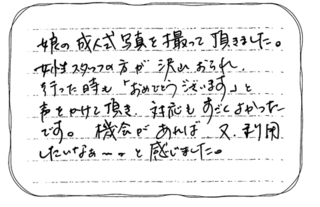 娘の成人式写真を撮って頂きました。
女性スタッフの方が沢山おられ、
行った時も「おめでとうございます」と
声をかけて頂き、対応もすごくよかった
です。機会があれば、又、利用
したいなぁーっと感じました。